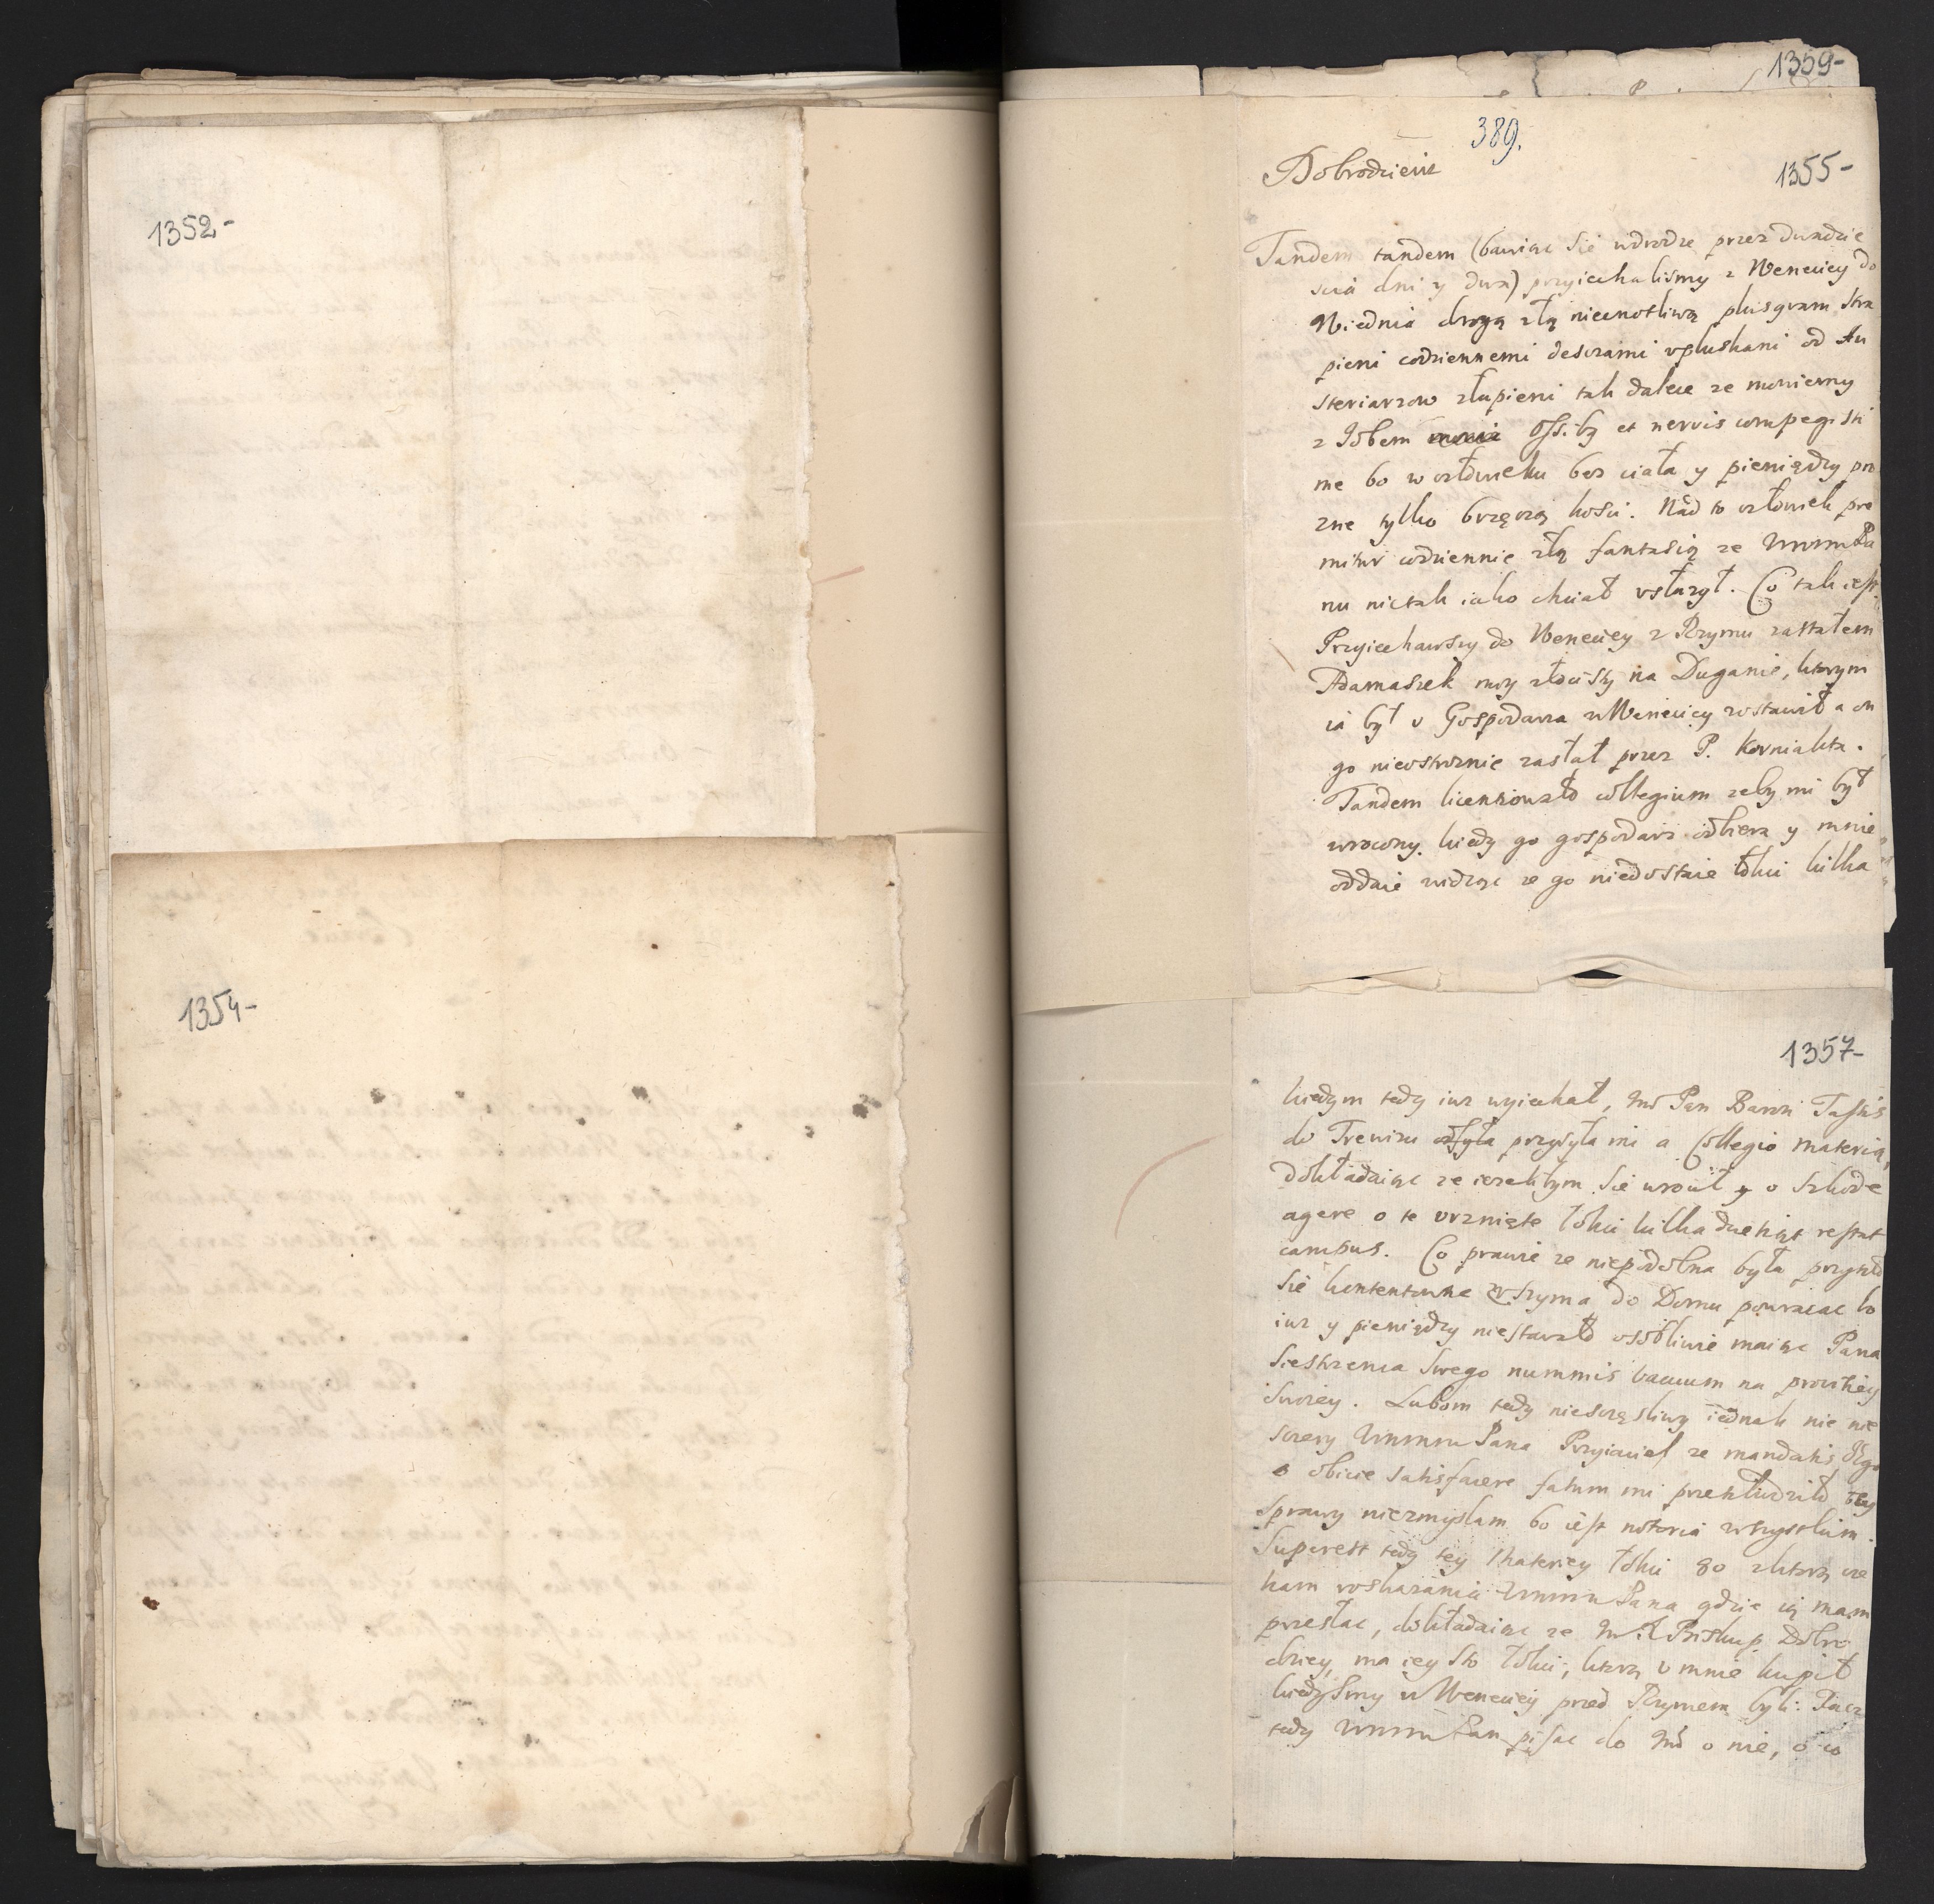 1352-
1354-
1359-
389.
1355-
Dobrodzieiu
Tandem tandem (bawiąc się wdrodze przez dwadzie
scia dni y dwa) przyiechalismy z Weneciey do
Wiednia drogą złą niecnotliwą plusquam
pieni codziennemi desczami vpluskani od Au
steriarzow złupieni tak dalece ze mowiemy
z Jobem ossibus et nervis compegisti
me bo w człowieku bez ciała y pieniędzy pro
zne tylko brzęczą kosci. Nad to człowiek pre
mitur codziennie złą fantasią ze Wmm Pa
nu nietak iako chciał vsłuzył. Co tak iest.
Przyiechawszy do Weneciey z Rzymu zastałem
Adamaszek moy złocisty na Duganie, ktorym
ia był v Gospodarza w Weneciey zostawił a on
go nieostroznie zasłał przez P. Korniakta.
Tandem licentiowało collegium zeby mi był
wrocony. kiedy go gospodarz odbiera y mnie
oddaie widząc ze go niedostaie łokci kilka
1357-
kiedym tedy iuz wyiechał, Pan Baron Tassis
do Trewizu przysyła mi a Collegio materią,
dokładaiąc ze iezelibym się wrocił y o szkode
agere o te vrznięte łokci kilkadziesiąt restat
campus. Co prawie ze niepodobna była przyszło
się kontentowac zeszyma do Domu powracac bo
iuz y pieniędzy niestawało osobliwie maiąc Pana
Siestrzenca swego nummis vacuum na prowisiey
swoiey. Lubom tedy niesczęsliwy iednak nie nie
sczery Wmmm Pana Przyiaciel ze mandatis
obicie satisfacere fatum mi przeszkodziło tey
sprawy niezmyslam bo iest notoria wszystkim.
Superest tedy tey materiey łokci 80 zktorą cze
kam roskazania Wmmm Pana gdzie ią mam
przesłac, dokładaiąc ze Biskup Dobro
dziey, ma iey sto łokci, ktorą v mnie kupił
kiedysmy w Weneciey przed Rzymem byli: Racz
tedy Wmmm Pan pisac do o nie, o co